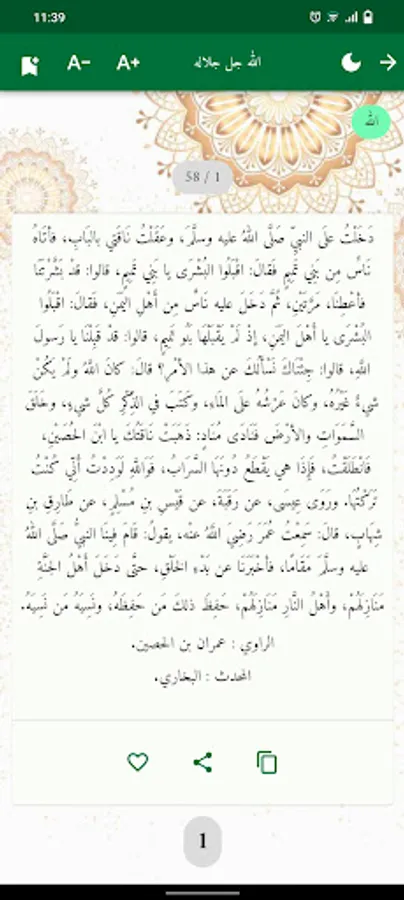 11:39
A- A+ الله جل جلاله
الله
58 / 1
دَخَلْتُ علَى النبيِّ صَلَّى اللهُ عليه وسلَّمَ، وعَقَلْتُ نَاقَتي بالبَابِ، فأتَاهُ
نَاسٌ مِن بَنِي تَمِيمٍ فَقالَ: اقْبَلُوا البُشْرَى يا بَنِي تَمِيمٍ، قالوا: قدْ بَشَّرْتَنَا
فأعْطِنَا، مَرَّتَيْنِ، ثُمَّ دَخَلَ عليه نَاسٌ مِن أَهْلِ اليَمَنِ، فَقالَ: اقْبَلُوا
البُشْرَى يا أَهْلَ اليَمَنِ، إذْ لَمْ يَقْبَلْهَا بَنُو تَمِيمٍ، قالوا: قدْ قَبِلْنَا يا رَسولَ
اللهِ، قالوا: جِئْنَاكَ نَسْأَلُكَ عن هذا الأمْرِ؟ قالَ: كانَ اللهُ ولَمْ يَكُنْ
شيءٌ غَيْرُهُ، وكانَ عَرْشُهُ علَى المَاءِ، وكَتَبَ في الذِّكْرِ كُلَّ شيءٍ، وخَلَقَ
السَّمَوَاتِ والأرْضَ فَنَادَى مُنَادٍ: ذَهَبَتْ نَاقَتُكَ يا ابْنَ الحُصَيْنِ،
فَانْطَلَقْتُ، فَإِذَا هي يَقْطَعُ دُونَهَا السَّرَابُ، فَوَاللهِ لَوَدِدْتُ أَنِّي كُنْتُ
تَرَكْتُهَا. ورَوَى عِيسَى، عن رَقَبَةَ، عن قَيْسِ بنِ مُسْلِمٍ، عن طَارِقِ بنِ
شِهَابٍ، قالَ: سَمِعْتُ عُمَرَ رَضِيَ اللهُ عنْه، يقولُ: قَامَ فِينَا النبيُّ صَلَّى اللهُ
عليه وسلَّمَ مَقَامًا، فأخْبَرَنَا عن بَدْءِ الخَلْقِ، حتَّى دَخَلَ أَهْلُ الجَنَّةِ
مَنَازِلَهُمْ، وأَهْلُ النَّارِ مَنَازِلَهُمْ، حَفِظَ ذلكَ مَن حَفِظَهُ، ونَسِيَهُ مَن نَسِيَهُ.
الراوي : عمران بن الحصين.
المحدث : البخاري.
1